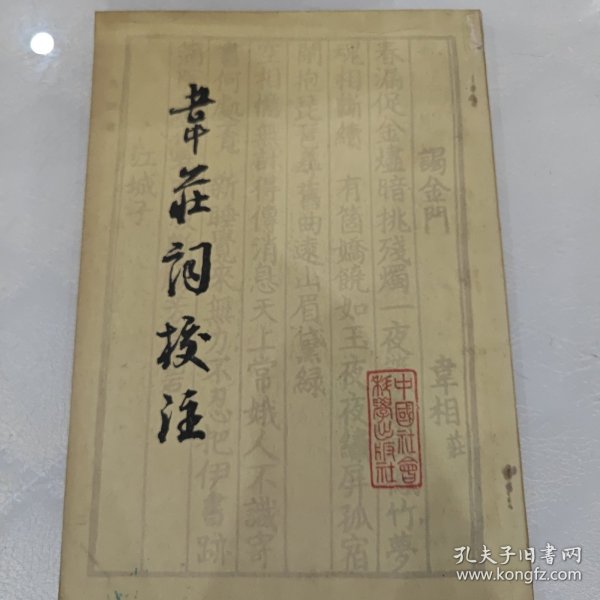 韋莊詞校注
中國社會
科學出版社
謁金門
韋相莊
春漏促金燼暗挑殘燭一夜
竹夢
魂相斷續 有箇嬌饒如玉夜夜繡屏孤宿
閑抱琵琶尋舊曲遠山眉黛綠
空相憶無計得傳消息天上常娥人不識寄
書何處覓 新睡覺來無力不忍把伊書跡
江城子
孔夫子旧书网
www.kongfz.com